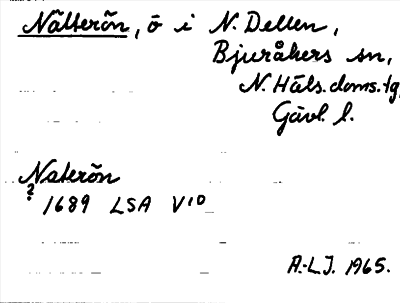 Nätterön, ö i N. Dellen,
Bjuråkers sn,
N. Häls. doms. tg,
Gävl. l.
Naterön
? 1689 LSA V10
A.-L.J. 1965.